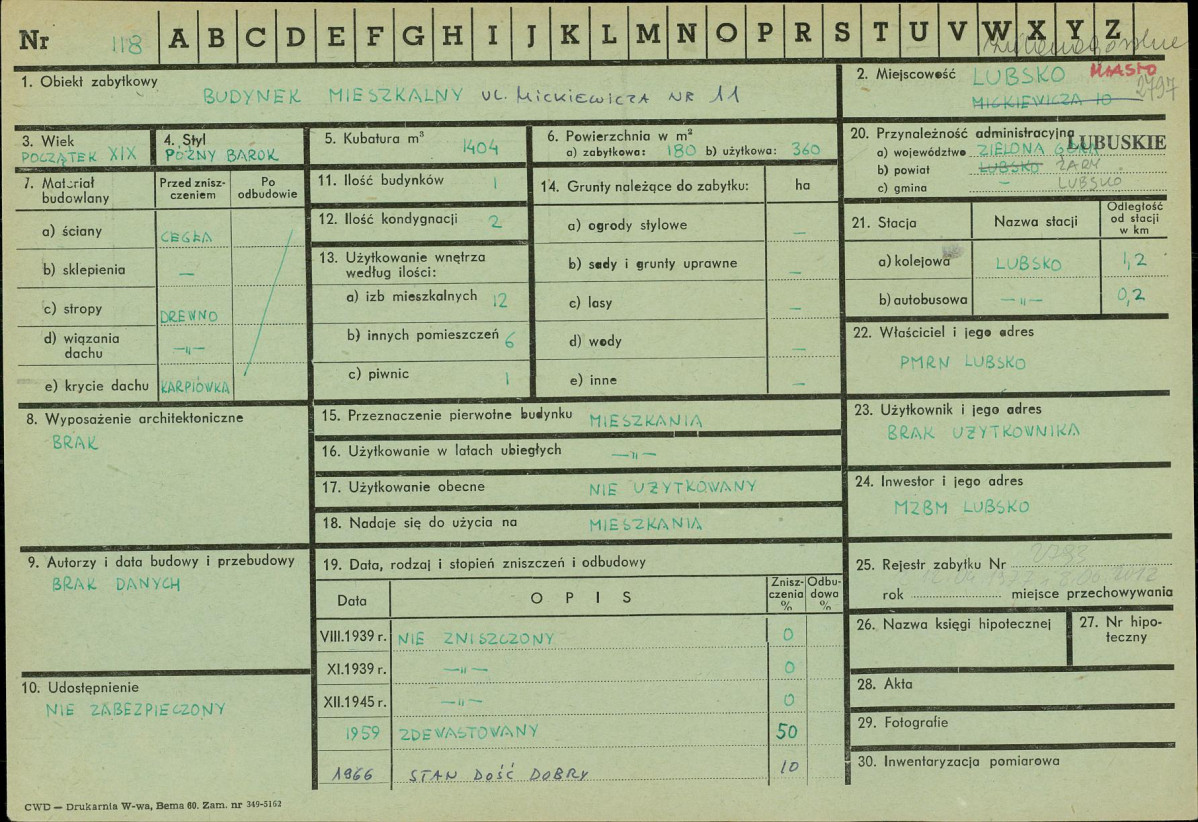 Nr 118 A B C D E F G H I J K L M N O P R S T U V W X Y Z
1. Obiekt zabytkowy
BUDYNEK MIESZKALNY UL. MICKIEWICZA NR 11
2. Miejscowość LUBSKO MIASTO
2797
MICKIEWICZA 10
3. Wiek
POCZĄTEK XIX
4. Styl
PÓŹNY BAROK
5. Kubatura m³ 1404
6. Powierzchnia w m²
a) zabytkowa: 180 b) użytkowa: 360
20. Przynależność administracyjna
LUBUSKIE
a) województwo ZIELONA GÓRA
b) powiat LUBSKO ŻARY
c) gmina — LUBSKO
7. Materiał budowlany
Przed zniszczeniem
Po odbudowie
a) ściany CEGŁA
b) sklepienia —
c) stropy DREWNO
d) wiązania dachu —„—
e) krycie dachu KARPIÓWKA
11. Ilość budynków 1
12. Ilość kondygnacji 2
13. Użytkowanie wnętrza według ilości:
a) izb mieszkalnych 12
b) innych pomieszczeń 6
c) piwnic 1
14. Grunty należące do zabytku: ha
a) ogrody stylowe —
b) sady i grunty uprawne —
c) lasy —
d) wody —
e) inne —
21. Stacja
Nazwa stacji
Odległość od stacji w km
a) kolejowa LUBSKO 1,2
b) autobusowa —„— 0,2
22. Właściciel i jego adres
PMRN LUBSKO
8. Wyposażenie architektoniczne
BRAK
15. Przeznaczenie pierwotne budynku MIESZKANIA
16. Użytkowanie w latach ubiegłych —„—
17. Użytkowanie obecne NIE UŻYTKOWANY
18. Nadaje się do użycia na MIESZKANIA
23. Użytkownik i jego adres
BRAK UŻYTKOWNIKA
24. Inwestor i jego adres
MZBM LUBSKO
9. Autorzy i data budowy i przebudowy
BRAK DANYCH
10. Udostępnienie
NIE ZABEZPIECZONY
19. Data, rodzaj i stopień zniszczeń i odbudowy
Data
OPIS
Zniszczenia %
Odbudowa %
VIII.1939 r. NIE ZNISZCZONY 0
XI.1939 r. —„— 0
XII.1945 r. —„— 0
1959 ZDEWASTOWANY 50
1966 STAN DOŚĆ DOBRY 10
25. Rejestr zabytku Nr
rok miejsce przechowywania
26. Nazwa księgi hipotecznej
27. Nr hipoteczny
28. Akta
29. Fotografie
30. Inwentaryzacja pomiarowa
CWD — Drukarnia W-wa, Bema 60. Zam. nr 349-5162